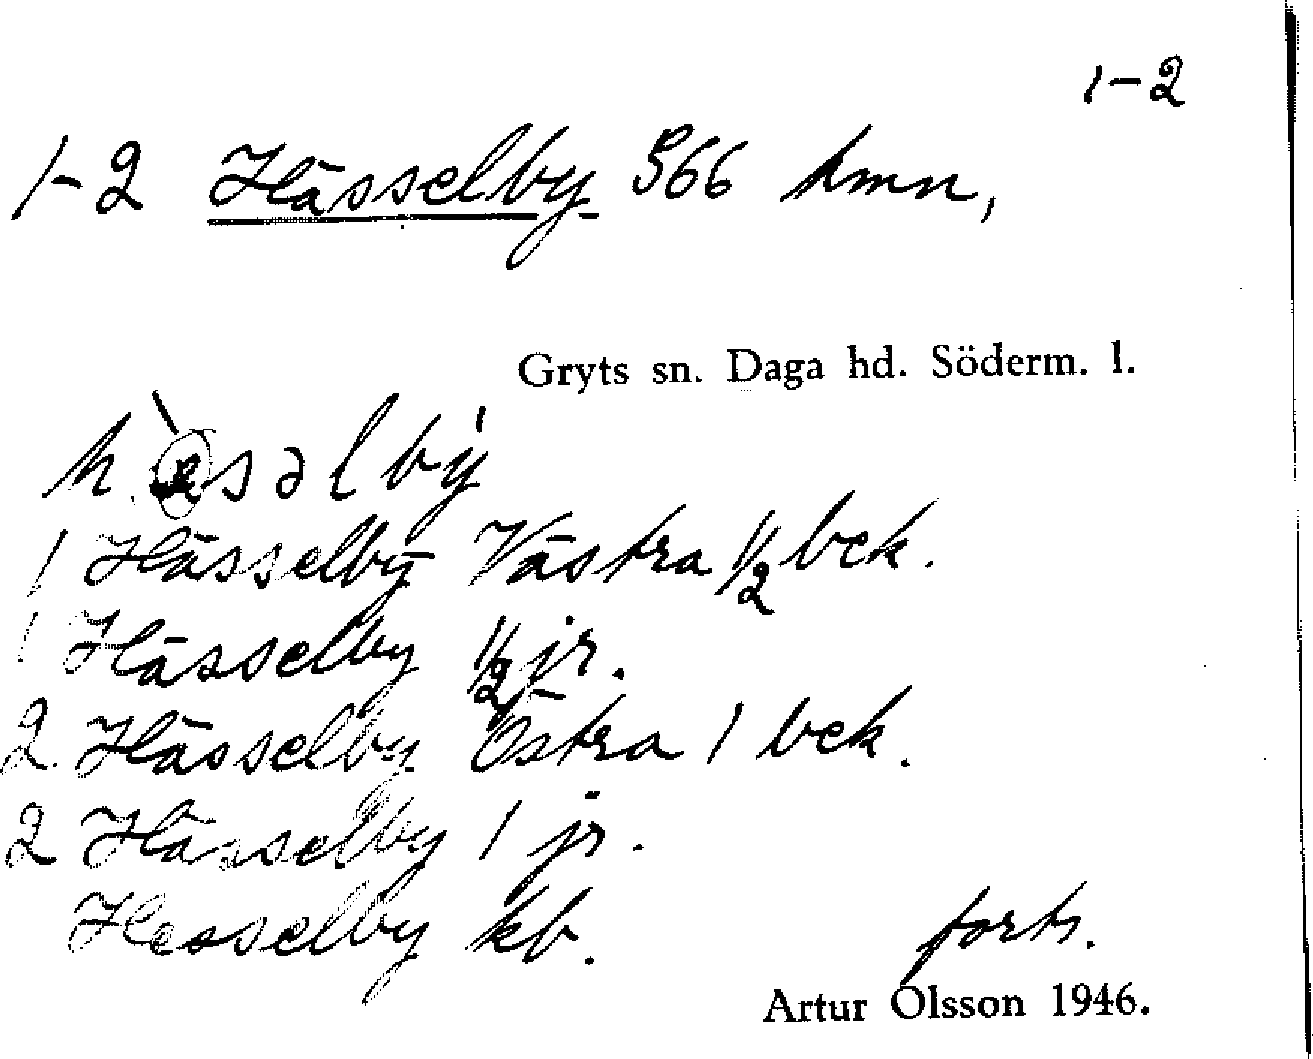 1-2
1-2 Hässelby 566 hmn,
Gryts sn. Daga hd. Söderm. l.
1 Hässelby Västra 1/2 bck.
1 Hässelby 1/2 jr.
2 Hässelby Östra 1 bck.
2 Hässelby 1 jr.
Hesselby kb.
forts.
Artur Olsson 1946.